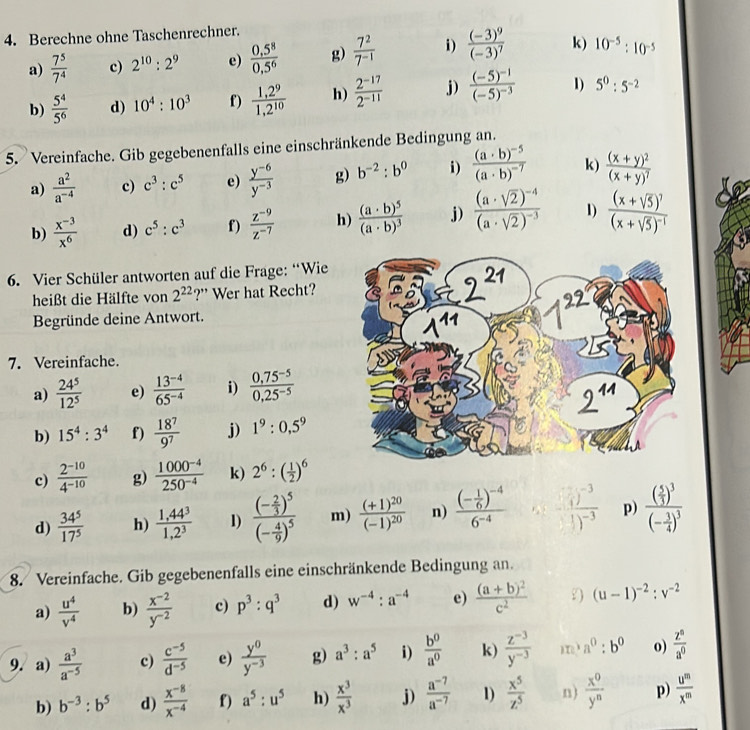 4. Berechne ohne Taschenrechner.
a) 7⁵/7⁴ c) 2¹⁰ : 2⁹ e) 0,5⁸/0,5⁶ g) 7²/7⁻¹ i) (-3)⁹/(-3)⁷ k) 10⁻⁵ : 10⁻⁵
b) 5⁴/5⁶ d) 10⁴ : 10³ f) 1,2⁹/1,2¹⁰ h) 2⁻¹⁷/2⁻¹¹ j) (-5)⁻¹/(-5)⁻³ l) 5⁰ : 5⁻²
5. Vereinfache. Gib gegebenenfalls eine einschränkende Bedingung an.
a) a²/a⁻⁴ c) c³ : c⁵ e) y⁻⁶/y⁻³ g) b⁻² : b⁰ i) (a · b)⁻⁵/(a · b)⁻⁷ k) (x + y)²/(x + y)⁷
b) x⁻³/x⁶ d) c⁵ : c³ f) z⁻⁹/z⁻⁷ h) (a · b)⁵/(a · b)³ j) (a · √2)⁻⁴/(a · √2)⁻³ l) (x + √5)⁷/(x + √5)⁻¹
6. Vier Schüler antworten auf die Frage: “Wie
heißt die Hälfte von 2²²?” Wer hat Recht?
Begründe deine Antwort.
2²¹
1¹¹
1²²
2¹¹
7. Vereinfache.
a) 24⁵/12⁵ e) 13⁻⁴/65⁻⁴ i) 0,75⁻⁵/0,25⁻⁵
b) 15⁴ : 3⁴ f) 18⁷/9⁷ j) 1⁹ : 0,5⁹
c) 2⁻¹⁰/4⁻¹⁰ g) 1000⁻⁴/250⁻⁴ k) 2⁶ : (1/2)⁶
d) 34⁵/17⁵ h) 1,44³/1,2³ l) (-2/3)⁵/(-4/9)⁵ m) (+1)²⁰/(-1)²⁰ n) (-1/6)⁻⁴/6⁻⁴ p) (5/3)³/(-3/4)³
8. Vereinfache. Gib gegebenenfalls eine einschränkende Bedingung an.
a) u⁴/v⁴ b) x⁻²/y⁻² c) p³ : q³ d) w⁻⁴ : a⁻⁴ e) (a + b)²/c² (u - 1)⁻² : v⁻²
9. a) a³/a⁻⁵ c) c⁻⁵/d⁻⁵ e) y⁰/y⁻³ g) a³ : a⁵ i) b⁰/a⁰ k) z⁻³/y⁻³ m) a⁰ : b⁰ o) zⁿ/a⁰
b) b⁻³ : b⁵ d) x⁻⁸/x⁻⁴ f) a⁵ : u⁵ h) x³/x³ j) a⁻⁷/a⁻⁷ l) x⁵/z⁵ n) x⁰/yⁿ p) uᵐ/xᵐ